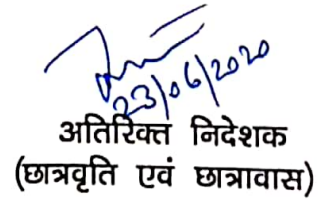 23/06/2020
अतिरिक्त निदेशक
(छात्रवृति एवं छात्रावास)